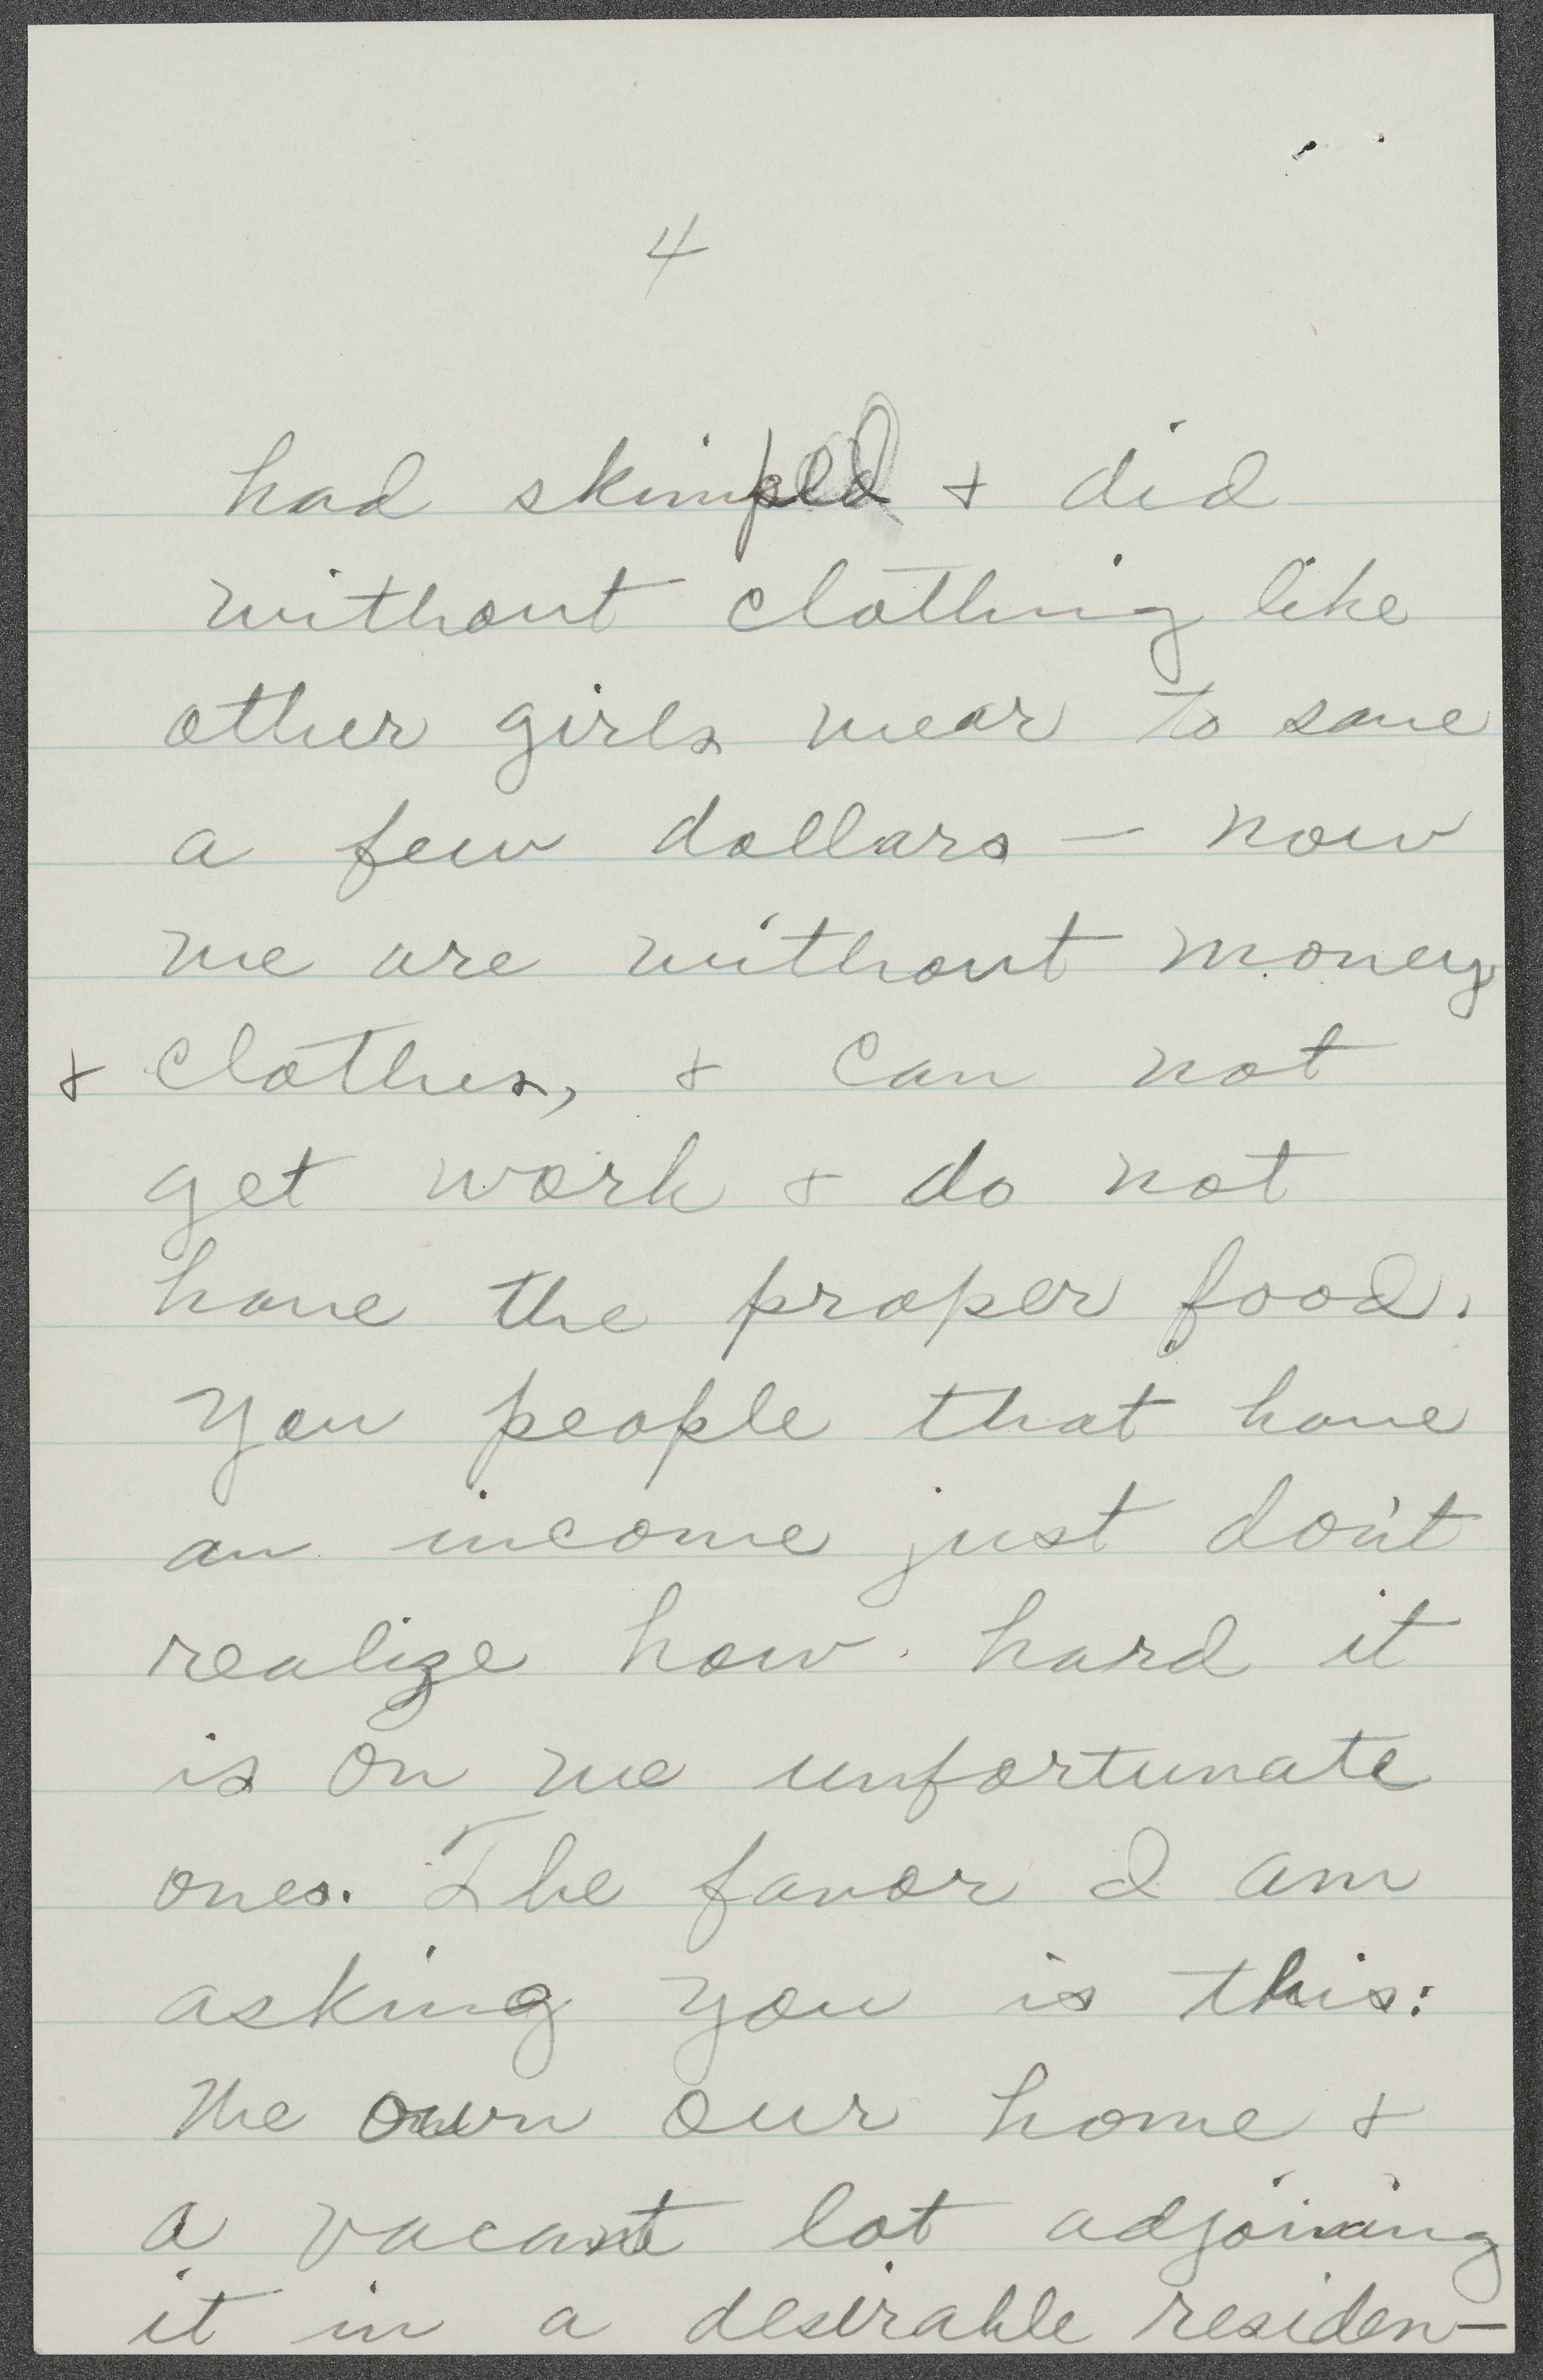 4
had skimped & did
without clothing like
other girls wear to save
a few dollars — now
we are without money
& clothes, & can not
get work & do not
have the proper food.
You people that have
an income just don't
realize how hard it
is on we unfortunate
ones. The favor I am
asking you is this:
We own our home &
a vacant lot adjoining
it in a desirable residen-